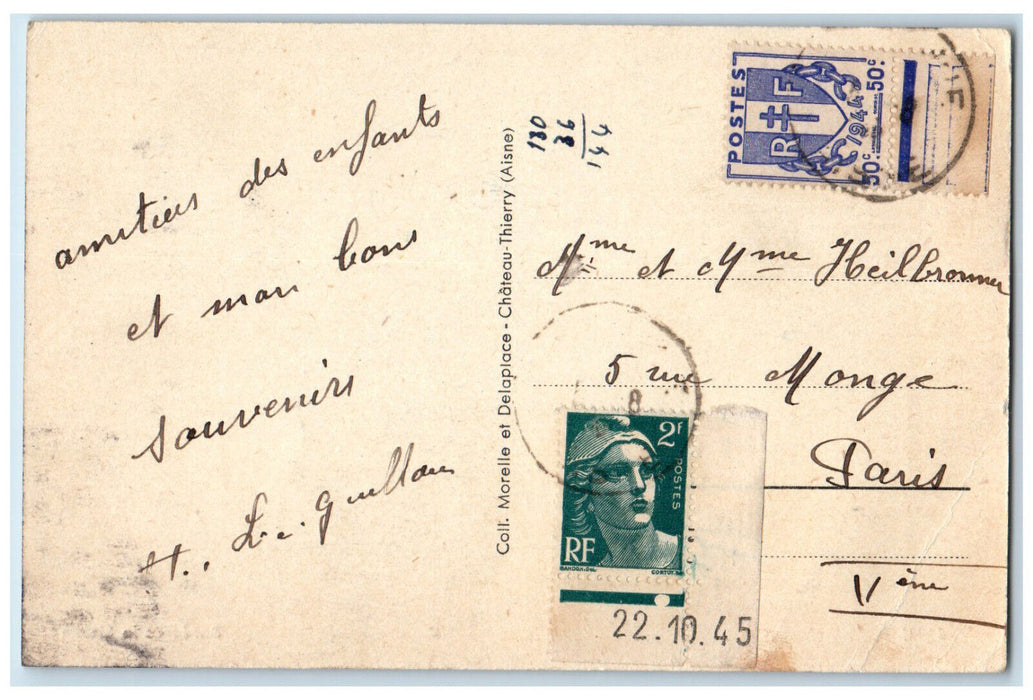 amitiés des enfants
et mon bons
souvenirs
H. Le Guillou
Coll. Morelle et Delaplace - Château-Thierry (Aisne)
180
36
144
POSTES
RF
1944
50c
50c
Mme et Mme Heilbronner
5 rue Monge
Paris
Vème
8
2f
POSTES
RF
GANDON DEL
CORTOT
22.10.45